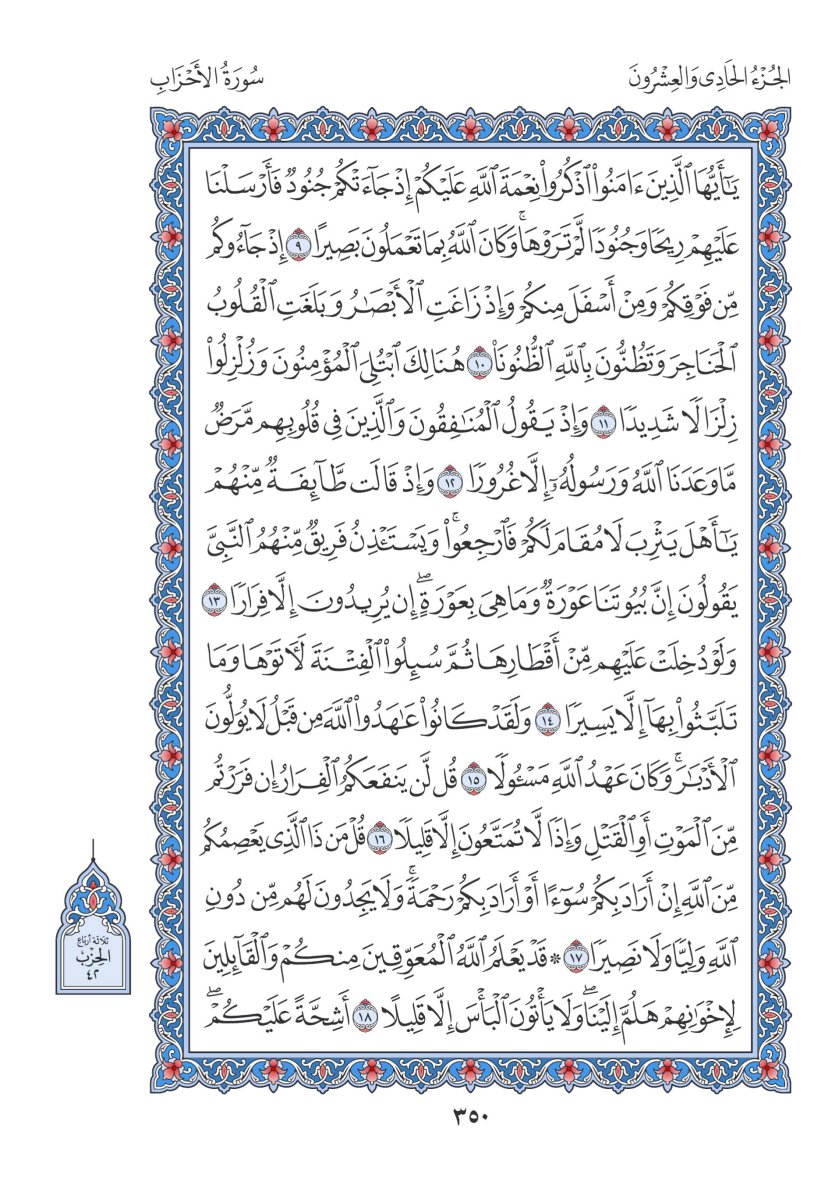 الجُزْءُ الحَادِى وَالعِشْرُونَ
سُورَةُ الأَحْزَابِ
يَٰٓأَيُّهَا ٱلَّذِينَ ءَامَنُوا۟ ٱذْكُرُوا۟ نِعْمَةَ ٱللَّهِ عَلَيْكُمْ إِذْ جَآءَتْكُمْ جُنُودٌ فَأَرْسَلْنَا
عَلَيْهِمْ رِيحًا وَجُنُودًا لَّمْ تَرَوْهَا ۚ وَكَانَ ٱللَّهُ بِمَا تَعْمَلُونَ بَصِيرًا ٩ إِذْ جَآءُوكُم
مِّن فَوْقِكُمْ وَمِنْ أَسْفَلَ مِنكُمْ وَإِذْ زَاغَتِ ٱلْأَبْصَٰرُ وَبَلَغَتِ ٱلْقُلُوبُ
ٱلْحَنَاجِرَ وَتَظُنُّونَ بِٱللَّهِ ٱلظُّنُونَا۠ ١٠ هُنَالِكَ ٱبْتُلِىَ ٱلْمُؤْمِنُونَ وَزُلْزِلُوا۟
زِلْزَالًا شَدِيدًا ١١ وَإِذْ يَقُولُ ٱلْمُنَٰفِقُونَ وَٱلَّذِينَ فِى قُلُوبِهِم مَّرَضٌ
مَّا وَعَدَنَا ٱللَّهُ وَرَسُولُهُۥٓ إِلَّا غُرُورًا ١٢ وَإِذْ قَالَت طَّآئِفَةٌ مِّنْهُمْ
يَٰٓأَهْلَ يَثْرِبَ لَا مُقَامَ لَكُمْ فَٱرْجِعُوا۟ ۚ وَيَسْتَـْٔذِنُ فَرِيقٌ مِّنْهُمُ ٱلنَّبِىَّ
يَقُولُونَ إِنَّ بُيُوتَنَا عَوْرَةٌ وَمَا هِىَ بِعَوْرَةٍ ۖ إِن يُرِيدُونَ إِلَّا فِرَارًا ١٣
وَلَوْ دُخِلَتْ عَلَيْهِم مِّنْ أَقْطَارِهَا ثُمَّ سُئِلُوا۟ ٱلْفِتْنَةَ لَـَٔاتَوْهَا وَمَا
تَلَبَّثُوا۟ بِهَآ إِلَّا يَسِيرًا ١٤ وَلَقَدْ كَانُوا۟ عَٰهَدُوا۟ ٱللَّهَ مِن قَبْلُ لَا يُوَلُّونَ
ٱلْأَدْبَٰرَ ۚ وَكَانَ عَهْدُ ٱللَّهِ مَسْـُٔولًا ١٥ قُل لَّن يَنفَعَكُمُ ٱلْفِرَارُ إِن فَرَرْتُم
مِّنَ ٱلْمَوْتِ أَوِ ٱلْقَتْلِ وَإِذًا لَّا تُمَتَّعُونَ إِلَّا قَلِيلًا ١٦ قُلْ مَن ذَا ٱلَّذِى يَعْصِمُكُم
مِّنَ ٱللَّهِ إِنْ أَرَادَ بِكُمْ سُوٓءًا أَوْ أَرَادَ بِكُمْ رَحْمَةً ۚ وَلَا يَجِدُونَ لَهُم مِّن دُونِ
ٱللَّهِ وَلِيًّا وَلَا نَصِيرًا ١٧ * قَدْ يَعْلَمُ ٱللَّهُ ٱلْمُعَوِّقِينَ مِنكُمْ وَٱلْقَآئِلِينَ
لِإِخْوَٰنِهِمْ هَلُمَّ إِلَيْنَا ۖ وَلَا يَأْتُونَ ٱلْبَأْسَ إِلَّا قَلِيلًا ١٨ أَشِحَّةً عَلَيْكُمْ ۖ
ثلاثة أرباع
الحِزْب
٤٢
٣٥٠